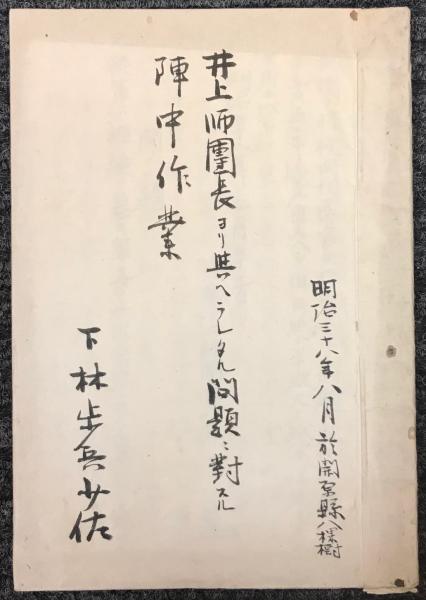 明治三十八年八月於開原縣八棵樹
井上師團長ヨリ與ヘラレタル問題ニ對スル
陣中作業
下林歩兵少佐